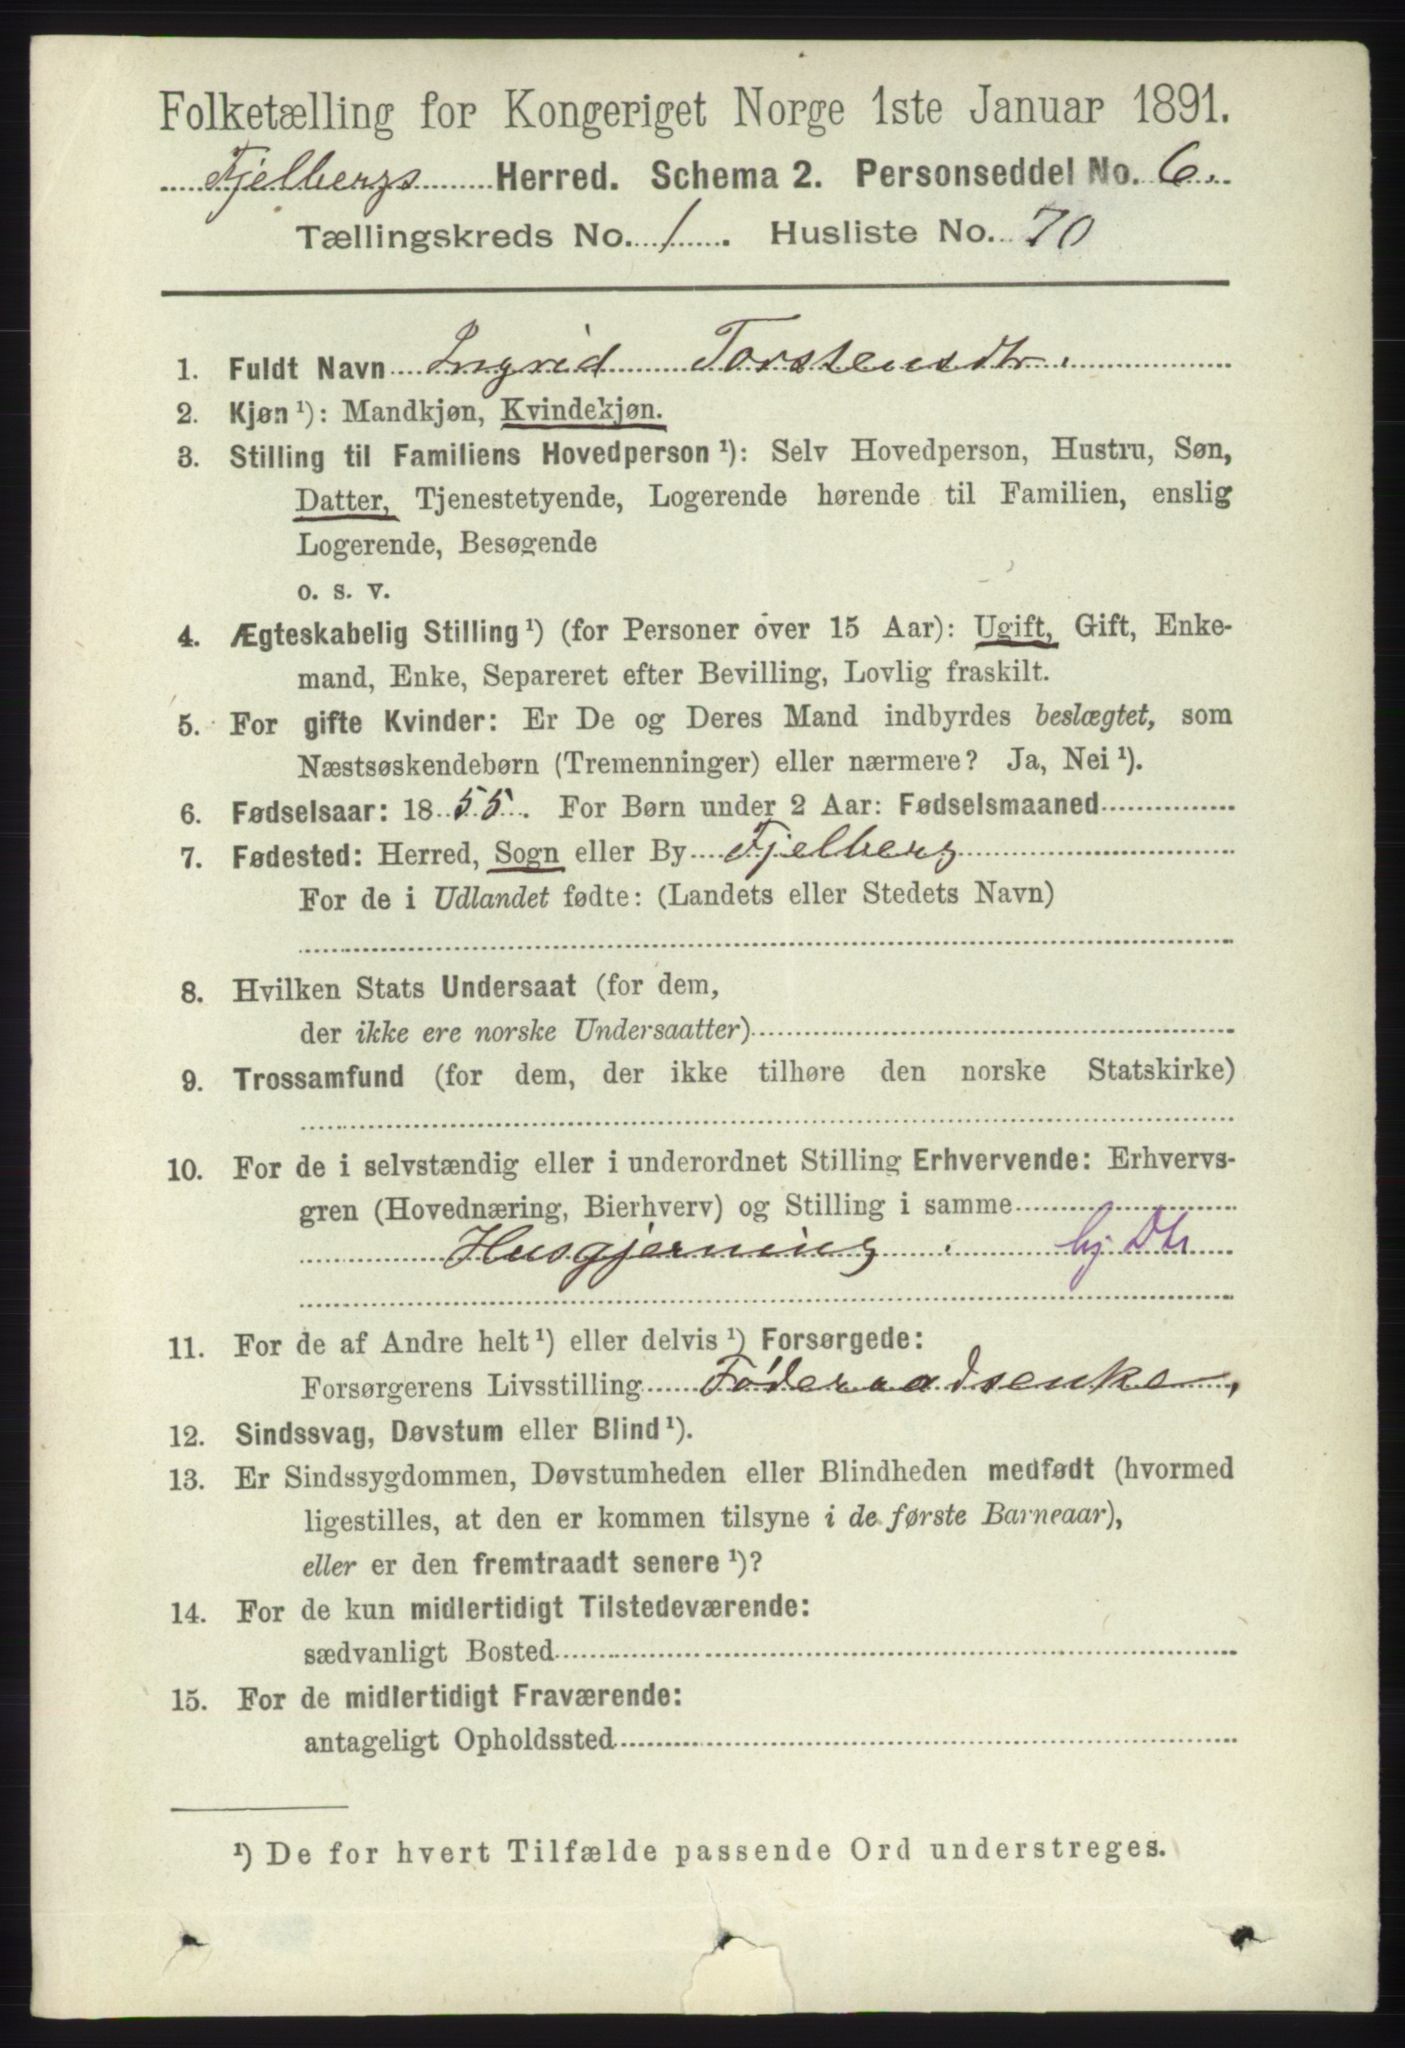 Folketælling for Kongeriget Norge 1ste Januar 1891.
Fjelbergs Herred. Schema 2. Personseddel No. 6.
Tællingskreds No. 1. Husliste No. 70
1. Fuldt Navn Ingrid Torstensdtr.
2. Kjøn ¹): Mandkjøn, Kvindekjøn.
3. Stilling til Familiens Hovedperson ¹): Selv Hovedperson, Hustru, Søn,
Datter, Tjenestetyende, Logerende hørende til Familien, enslig
Logerende, Besøgende
o. s. v.
4. Ægteskabelig Stilling ¹) (for Personer over 15 Aar): Ugift, Gift, Enke-
mand, Enke, Separeret efter Bevilling, Lovlig fraskilt.
5. For gifte Kvinder: Er De og Deres Mand indbyrdes beslægtet, som
Næstsøskendebørn (Tremenninger) eller nærmere? Ja, Nei ¹).
6. Fødselsaar: 1855. For Børn under 2 Aar: Fødselsmaaned
7. Fødested: Herred, Sogn eller By Fjelberg
For de i Udlandet fødte: (Landets eller Stedets Navn)
8. Hvilken Stats Undersaat (for dem,
der ikke ere norske Undersaatter)
9. Trossamfund (for dem, der ikke tilhøre den norske Statskirke)
10. For de i selvstændig eller i underordnet Stilling Erhvervende: Erhvervs-
gren (Hovednæring, Bierhverv) og Stilling i samme
Husgjerning. hj Dtr
11. For de af Andre helt ¹) eller delvis ¹) Forsørgede:
Forsørgerens Livsstilling Føderaadsenke,
12. Sindssvag, Døvstum eller Blind ¹).
13. Er Sindssygdommen, Døvstumheden eller Blindheden medfødt (hvormed
ligestilles, at den er kommen tilsyne i de første Barneaar),
eller er den fremtraadt senere ¹)?
14. For de kun midlertidigt Tilstedeværende:
sædvanligt Bosted
15. For de midlertidigt Fraværende:
antageligt Opholdssted
¹) De for hvert Tilfælde passende Ord understreges.